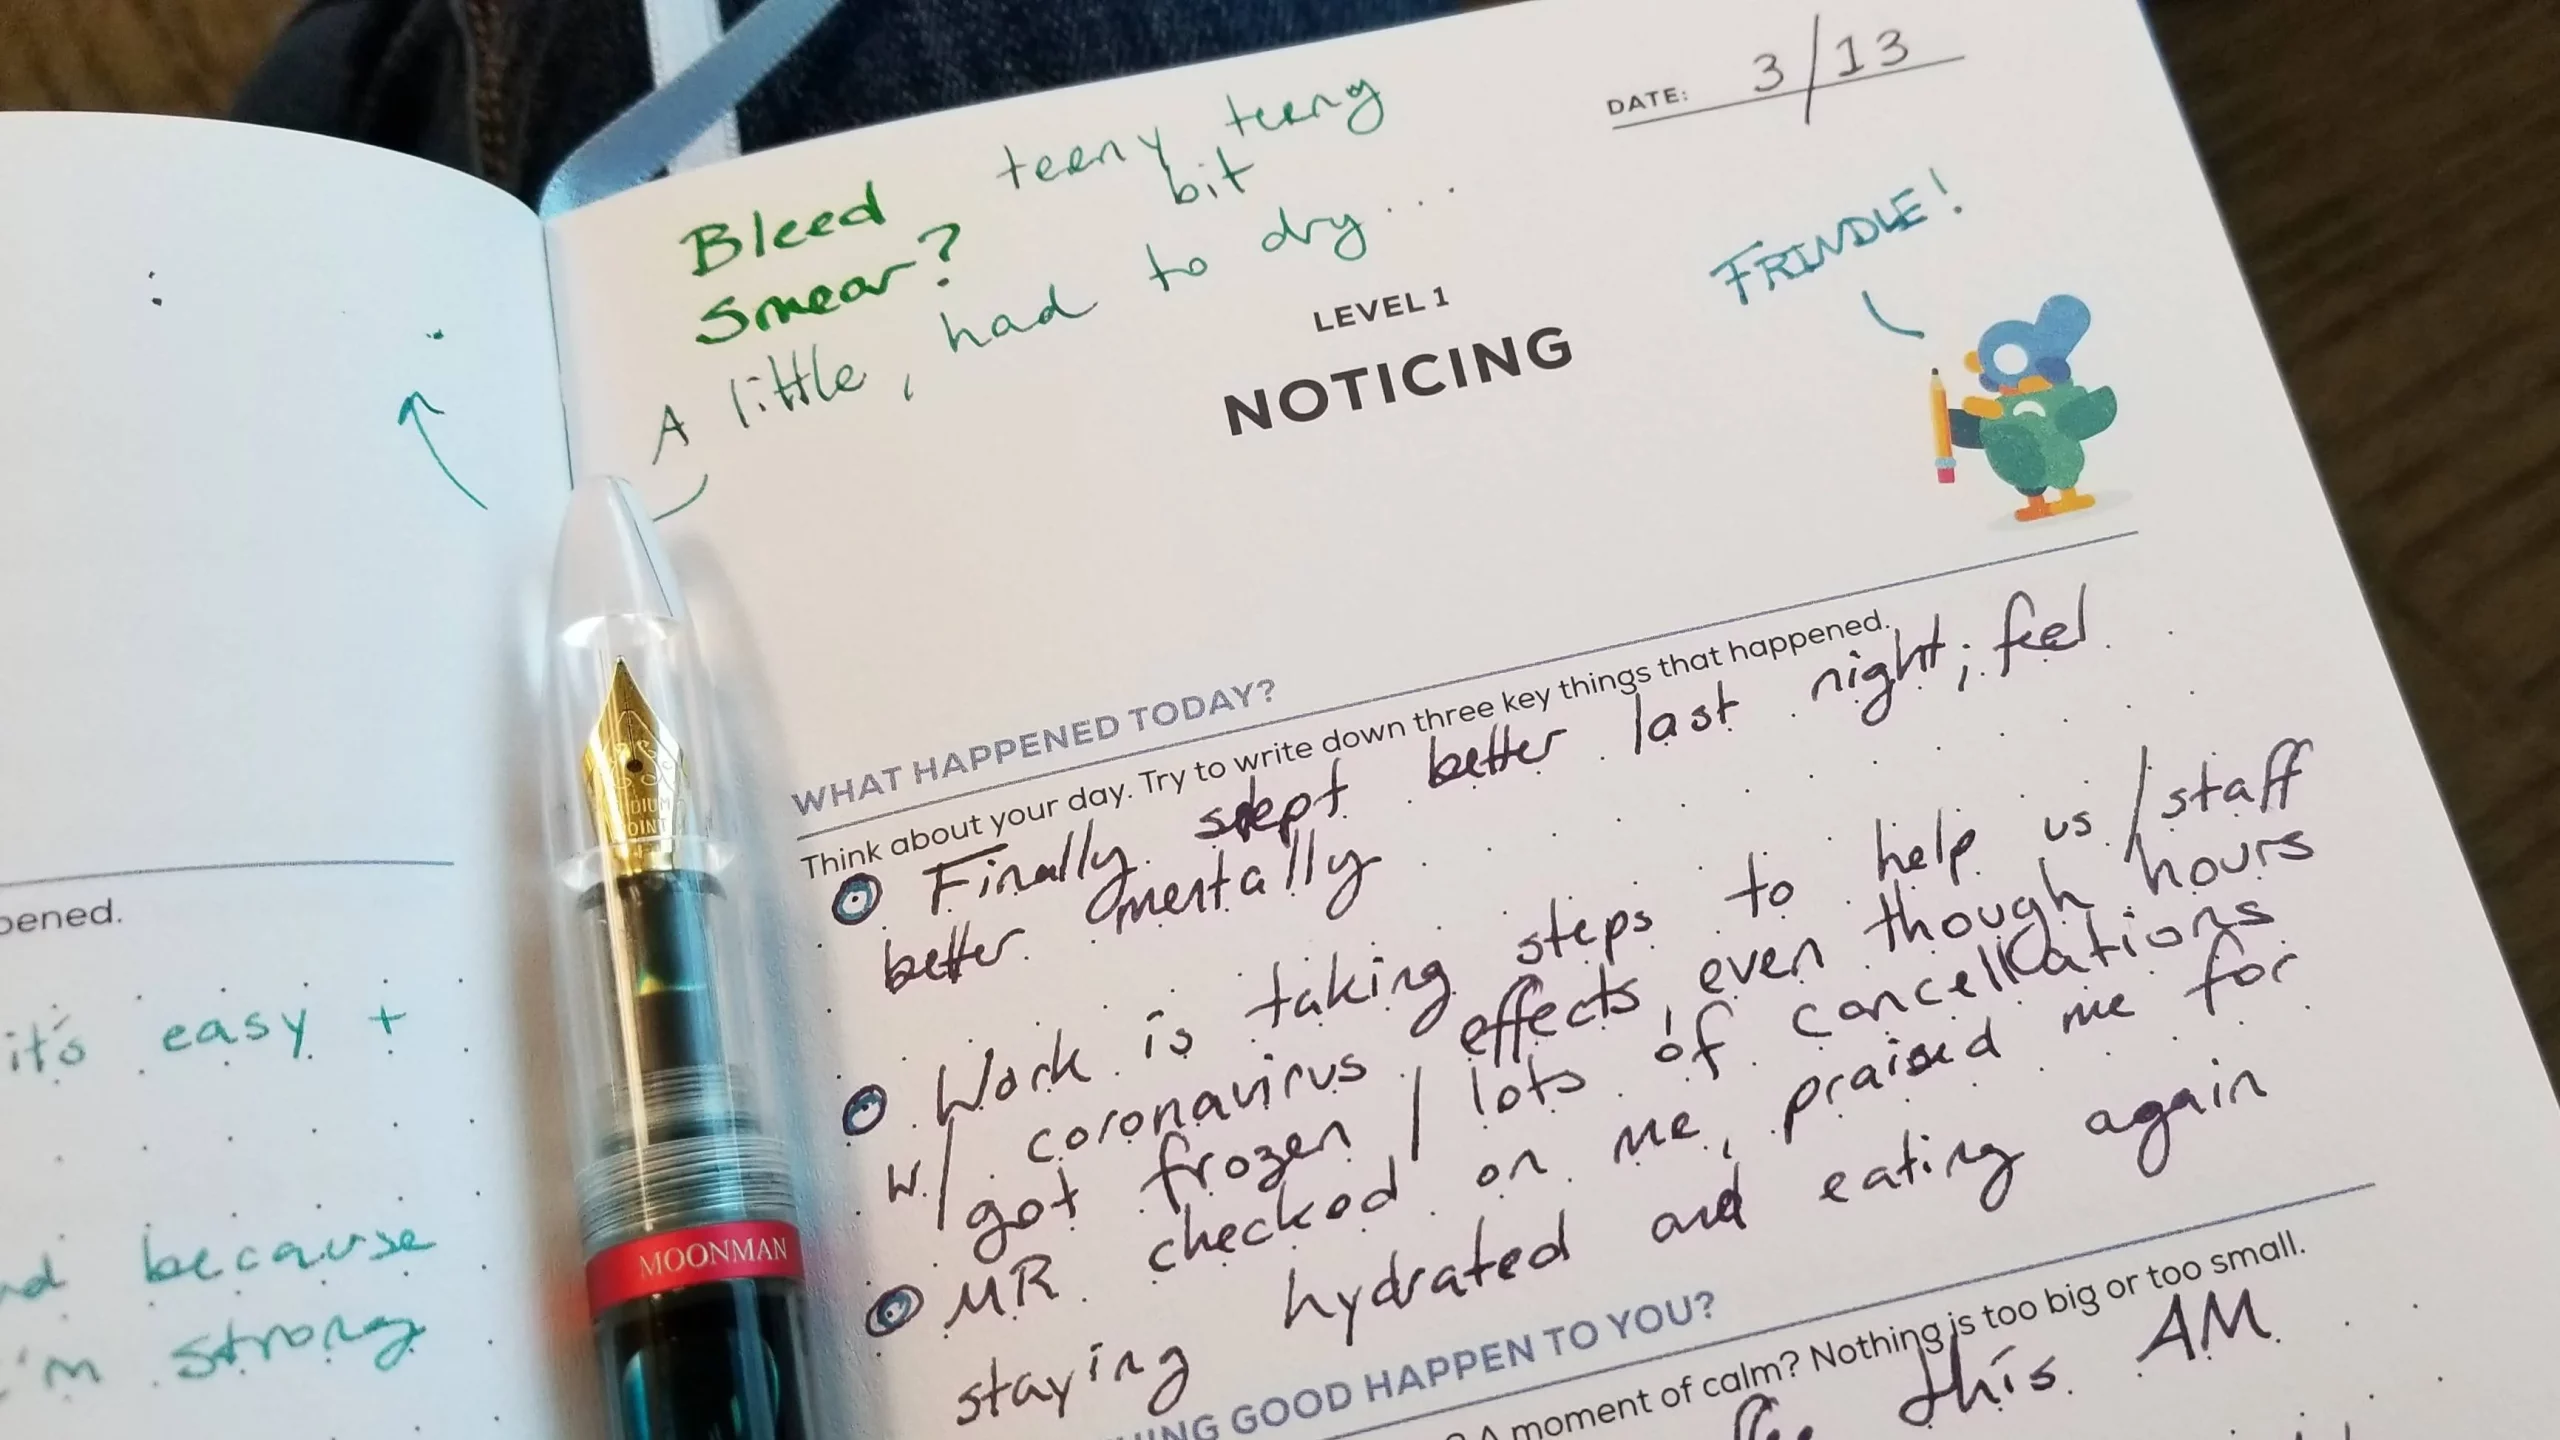 pened.
it's easy +
because
I'm strong
DATE: 3/13
Bleed teeny teeny
bit
smear?
A little, had to dry...
LEVEL 1
NOTICING
FRINDLE!
WHAT HAPPENED TODAY?
Think about your day. Try to write down three key things that happened.
Finally slept better last night; feel
better mentally
Work is taking steps to help us/staff
w/ coronavirus effects, even though hours
got frozen / lots of cancellations
MR checked on me, praised me for
staying hydrated and eating again
GOOD HAPPEN TO YOU?
A moment of calm? Nothing is too big or too small.
this AM
POINT
MOONMAN